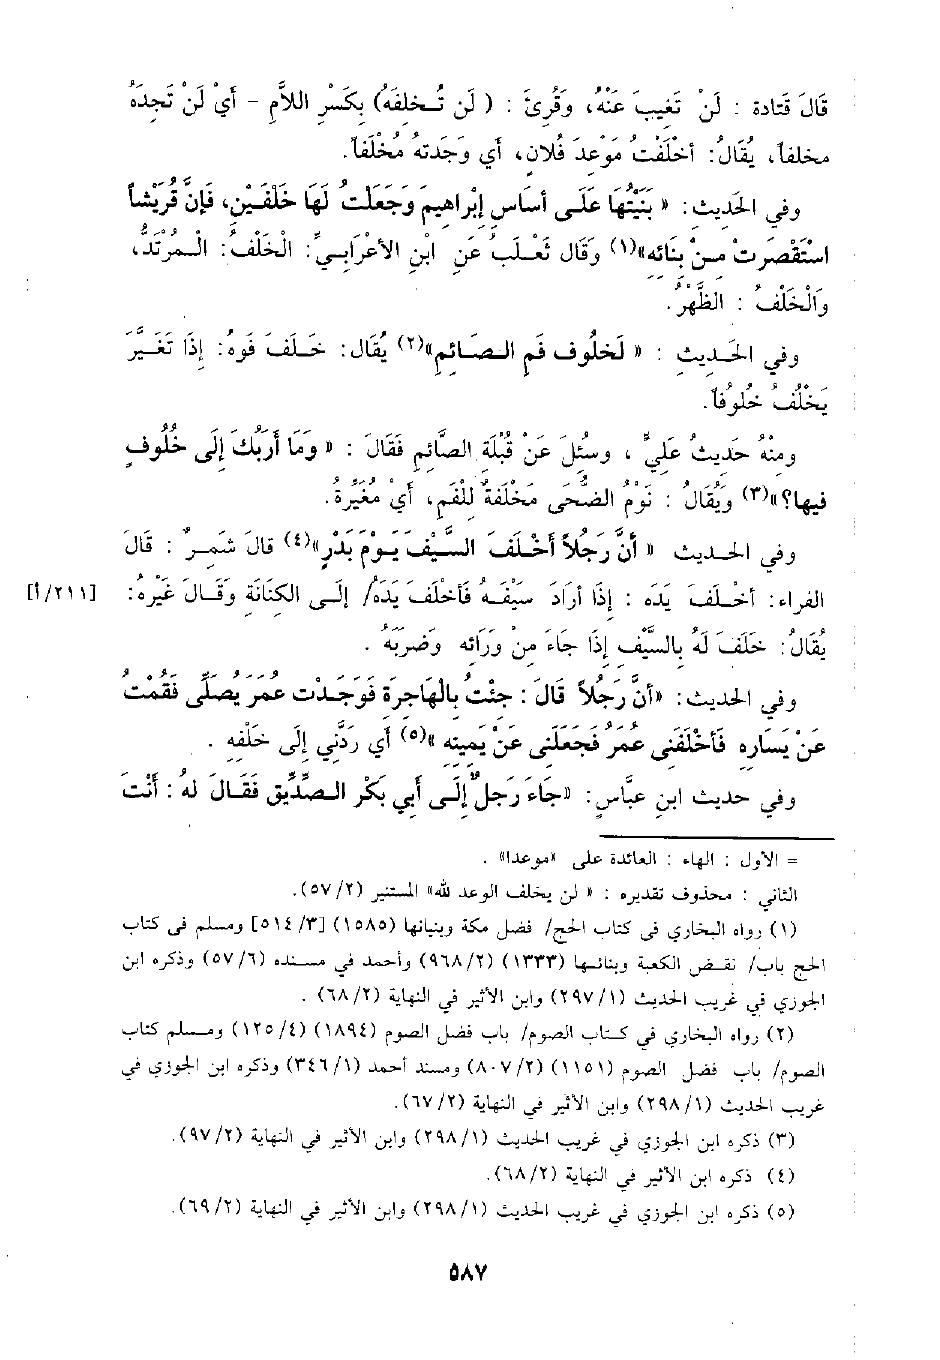 قَالَ قَتَادة : لَنْ تَغِيبَ عَنْهُ، وَقُرِئَ : ( لَن تُـخلِفَهُ) بِكَسْرِ اللاَّمِ – أَيْ لَنْ تَجِدَهُ
مخلفاً، يُقَالُ: أخْلَفْتُ مَوْعِدَ فُلانٍ، أي وَجَدتهُ مُخْلَفاً.
وفي الحَديث: « بَنَيْتُهَا عَلَـى أساسِ إبْراهيمَ وَجَعَلتُ لَهَا خَلْفَـيْنِ، فَإنَّ قُرَيْشاً
اسْتَقْصَرتْ مـنْ بنَائه»(١) وَقَال ثَعْـلَب عَنِ ابْنِ الأعْرَابـيِّ: الْخَلْفُ: الْـمِرْبَدُ،
وَالْخَلْفُ : الظَّهْرُ.
وفي الحَـديثِ : « لَخلُوف فَمِ الـصَـائِمِ»(٢) يُقَال: خَـلَفَ فَوهُ: إذَا تَغَـيَّرَ
يَخْلُفُ خُلُوفاً.
ومنْهُ حَديثُ عَليٍّ ، وسئلَ عَنْ قُبْلَة الصَّائم فَقَالَ : « وَمَا أَرَبُكَ إلَى خُلُوفِ
فيها؟»(٣) وَيُقَالُ : نَوْمُ الضُّحَى مَخْلَفةٌ لِلْفَمِ، أيْ مُغَيِّرَةٌ.
وفي الحـديث « أنَّ رَجُلاً أخْـلَفَ الـسَّـيْفَ يَـوْمَ بَدْرٍ»(٤) قالَ شَمِـرٌ : قَالَ
الفراء: أخْـلَفَ يَدَه : إذَا أرَادَ سَيْفَـهُ فَأخْلَفَ يَدَهُ/ إلَـى الكنَانَة وَقَـالَ غَيْرُه: [٢١١/أ]
يُقَالُ: خَلَفَ لَهُ بِالسَّيْف إذَا جَاءَ مِنْ وَرَائه وَضَربَهُ .
وفي الحَديث: «أنَّ رَجُلاً قَالَ : جئْتُ بِالْهَاجِرَة فَوَجَـدْت عُمَرَ يُصَلِّى فَقُمْتُ
عَنْ يَسَارِهِ فَأَخْلَفَنِى عُمَرُ فَجَعَلَنِى عَنْ يَمينِه »(٥) أي رَدَّنِي إلَى خَلْفِهِ .
وفي حديث ابنِ عبَّاسٍ: «جَاءَ رَجلٌ إلَى أبِي بَكْرِ الـصِّدِّيقِ فَقَـالَ لهُ : أَنْتَ
= الأول : الهاء : العائدة على «موعدا» .
الثاني : محذوف تقديره : « لن يخلف الوعد لله» المستنير (٥٧/٢).
(١) رواه البخاري في كتاب الحج/ فضل مكة وبنيانها (١٥٨٥) [٥١٤/٣] ومسلم في كتاب
الحج باب/ نقـض الكعبة وبنائـها (١٣٣٣) (٩٦٨/٢) وأحمد في مسنده (٥٧/٦) وذكره ابن
الجوزي في غريب الحديث (٢٩٧/١) وابن الأثير في النهاية (٦٨/٢) .
(٢) رواه البخاري في كـتاب الصوم/ باب فضل الصوم (١٨٩٤) (١٢٥/٤) ومسـلم كتاب
الصوم/ باب فضل الصوم (١١٥١) (٨٠٧/٢) ومسند أحمد (٣٤٦/١) وذكره ابن الجوزي في
غريب الحديث (٢٩٨/١) وابن الأثير في النهاية (٦٧/٢).
(٣) ذكره ابن الجوزي في غريب الحديث (٢٩٨/١) وابن الأثير في النهاية (٩٧/٢).
(٤) ذكره ابن الأثير في النهاية (٦٨/٢).
(٥) ذكره ابن الجوزي في غريب الحديث (٢٩٨/١) وابن الأثير في النهاية (٦٩/٢).
٥٨٧